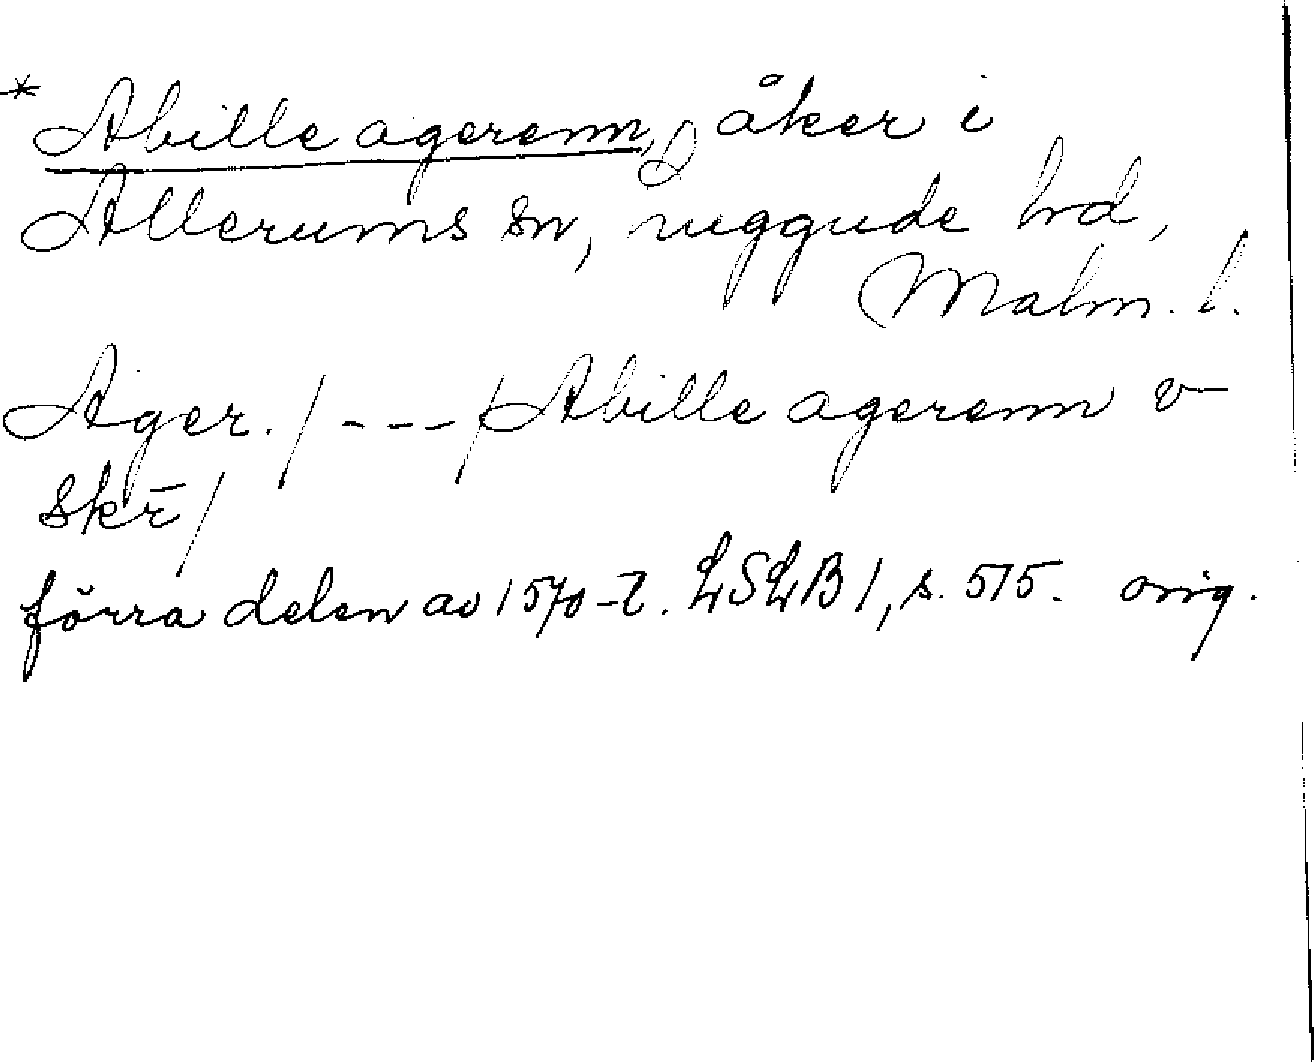 * Abille agerenn, åker i
Allerums sn, Luggude hd,
Malm. l.
Ager. / --- / Abille agerenn v
skr̄ /
förra delen av 1570-t. LSLB 1, s. 515. orig.